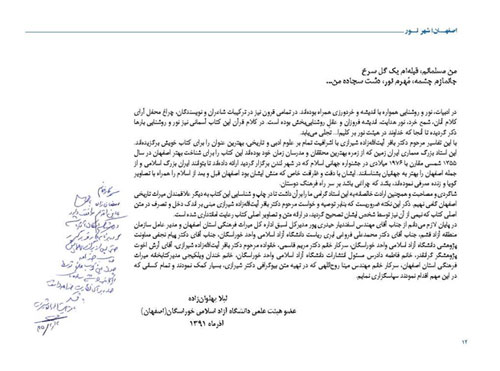 اصفهان: شهر نور
من مسلمانم، قبله‌ام یک گل سرخ
جانمازم چشمه، مُهرم نور، دشت سجاده من...
در ادبیات، نور و روشنایی همواره با اندیشه و خردورزی همراه بوده‌اند. در تمامی قرون نیز در ترکیبات شاعران و نویسندگان، چراغ محفل آرای
کلام آنان، شمع خرد، نور هدایت، اندیشه فروزان و عقل روشنایی‌بخش بوده است. در کلام قرآن این کتاب آسمانی نیز نور و روشنایی بارها
ذکر گردیده تا آنجا که خداوند در هیئت نور بر کلیم‌ا... تجلی می‌یابد.
با این تفاسیر مرحوم دکتر باقر آیت‌الله‌زاده شیرازی با اشرافیت تمام بر علوم ادبی و تاریخی، بهترین عنوان را برای کتاب خویش برگزیده‌اند.
این استاد بزرگ معماری ایران زمین که از زمره بهترین محققان و مدرسان زمان خود بوده‌اند، این کتاب را برای شناخت بهتر اصفهان در سال
۱۳۵۵ شمسی مقارن با ۱۹۷۶ میلادی در جشنواره جهانی اسلام که در شهر لندن برگزار گردید ارائه داده‌اند تا بتوانند ایران بزرگ اسلامی و از
جمله اصفهان را بهتر به جهانیان بشناسانند. ایشان با دقت و ظرافت خاص که منش ایشان بود اصفهان قبل و بعد از اسلام را همراه با تصاویر
گویا و زنده معرفی نموده‌اند، باشد که چراغی باشد بر سر راه فرهنگ دوستان.
شاگردی و مصاحبت و همچنین ارادت خالصانه به مرحوم دکتر باقر آیت‌الله‌زاده شیرازی، من را بر آن داشت تا در چاپ و شناسایی این کتاب به دیگر علاقمندان میراث تاریخی
اصفهان گامی نهیم. ذکر این نکته ضروریست که بنابر توصیه و خواست مرحوم دکتر باقر آیت‌الله‌زاده شیرازی مبنی بر اندک دخل و تصرف در متن
اصلی کتاب که نیمی از آن نیز توسط شخص ایشان تصحیح گردید، در ارائه متن و تصاویر اصلی کتاب رعایت امانتداری شده است.
در پایان لازم می‌دانم از جناب آقای مهندس اسفندیار حیدری‌پور مدیرکل اسبق اداره کل میراث فرهنگی استان اصفهان و مدیر عامل سازمان
منطقه آزاد قشم، جناب آقای دکتر محمدعلی فروغی ابری ریاست دانشگاه آزاد اسلامی واحد خوراسگان، جناب آقای دکتر پیام نجفی معاونت
پژوهشی دانشگاه آزاد اسلامی واحد خوراسگان، سرکار خانم دکتر مریم قاسمی، خانواده مرحوم دکتر باقر آیت‌الله‌زاده شیرازی، آقای آرش اخوت
پژوهشگر گرانقدر، خانم فاطمه دادرس مسئول انتشارات دانشگاه آزاد اسلامی واحد خوراسگان، خانم خندان ویلکیجی مدیرکتابخانه میراث
فرهنگی استان اصفهان، سرکار خانم مهندس مینا روح‌اللهی که در تهیه متن بیوگرافی دکتر شیرازی، بسیار کمک نمودند و تمام کسانی که
در این مهم اقدام نمودند سپاسگزاری می‌نمایم.
لیلا پهلوان‌زاده
عضو هیئت علمی دانشگاه آزاد اسلامی خوراسگان(اصفهان)
آذرماه ۱۳۹۱
۱۲